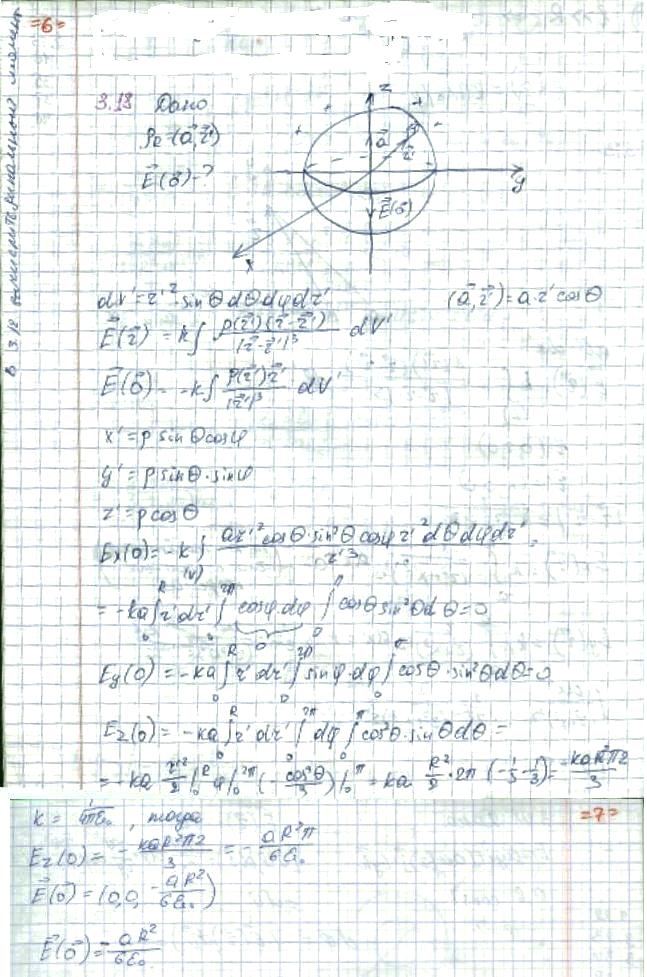 =6=
3.18 Дано
ρ=(a⃗,r⃗')
E⃗(0⃗)-?
z
a⃗
r⃗'
y
E⃗(0⃗)
x
dV'=r'² sinθdθdφdr' (a⃗,r⃗')=a·r'cosθ
E⃗(r⃗) = k∫ ρ(r⃗')(r⃗-r⃗')/|r⃗-r⃗'|³ dV'
E⃗(0⃗) = -k∫ ρ(r⃗')r⃗'/|r⃗'|³ dV'
x' = ρ sinθcosφ
y' = ρ sinθ·sinφ
z' = ρcosθ
Ex(0) = -k∫(V) ar'²cosθ·sin²θcosφ r'²dθdφdr'/r'³ =
= -ka∫₀ᴿ r'dr' ∫₀²π cosφdφ ∫₀π cosθsin²θdθ=0
0
Ey(0) = -ka∫₀ᴿ r'dr' ∫₀²π sinφdφ ∫₀π cosθ·sin²θdθ=0
Ez(0) = -ka∫₀ᴿ r'dr' ∫₀²π dφ ∫₀π cos²θ·sinθdθ =
= -ka r'²/2 |₀ᴿ φ|₀²π (-cos³θ/3)|₀π = ka R²/2 · 2π (-1/3-1/3) = -kaR²π2/3
=7=
k = 1/4πε₀, тогда
Ez(0) = -kaR²π2/3 = -aR²π/6ε₀
E⃗(0⃗) = (0,0, -aR²/6ε₀)
E⃗(0⃗) = -aR²/6ε₀
в 3.12 дипольный момент